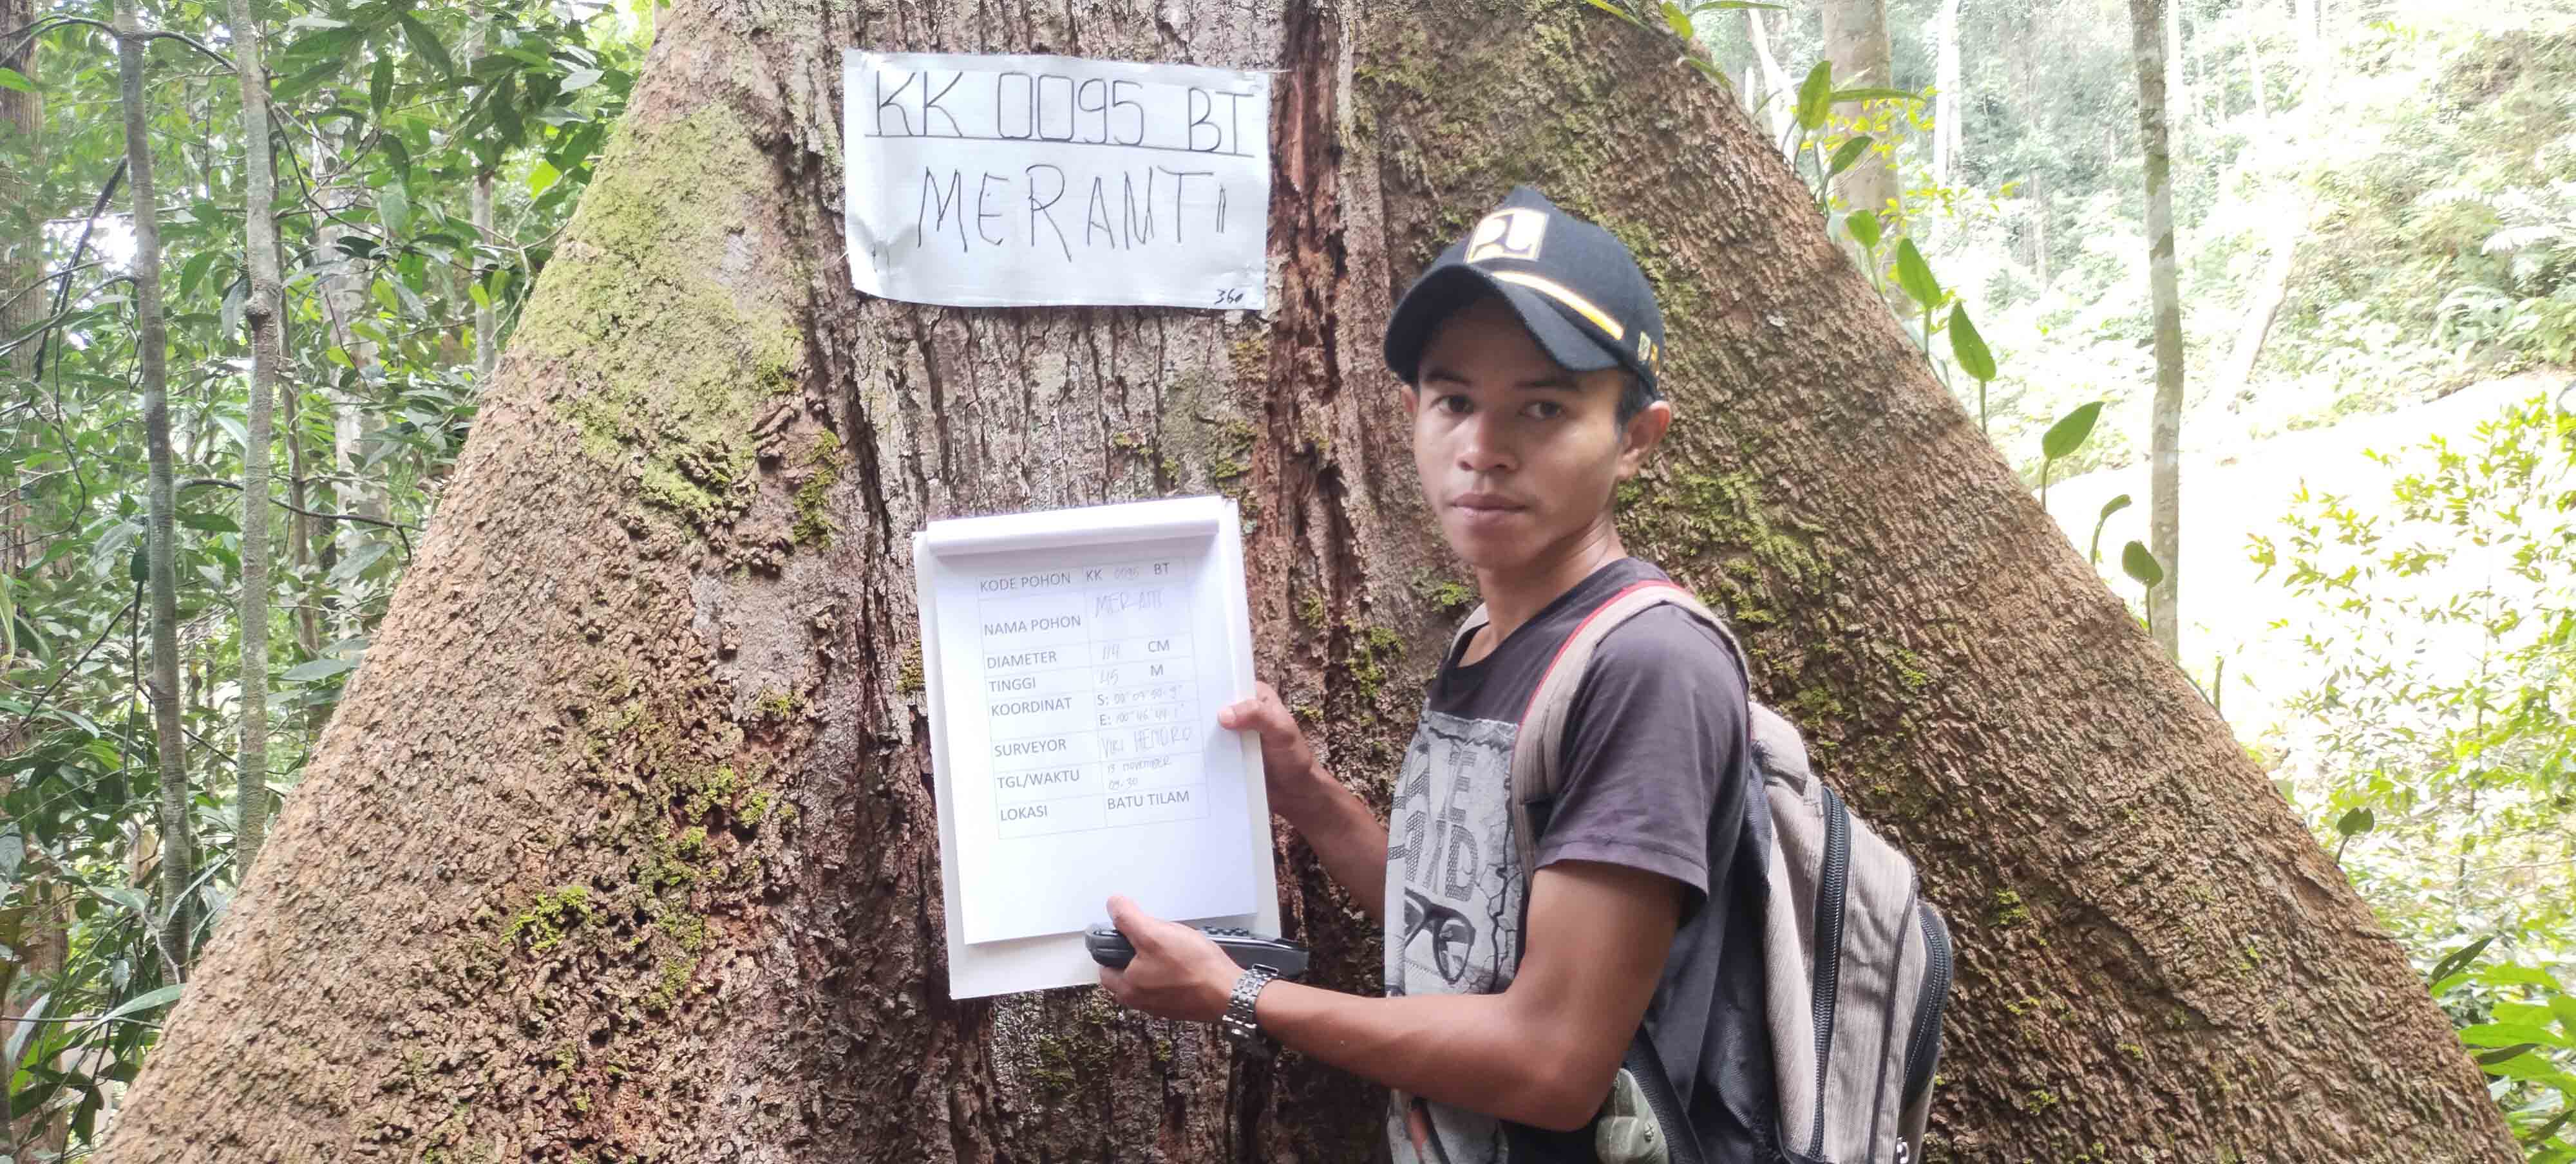 KK 0095 BT
MERANTI
360
KODE POHON KK 0095 BT
NAMA POHON MERANTI
DIAMETER 114 CM
TINGGI 45 M
KOORDINAT S:
E: 100° 46' 44.1"
SURVEYOR VIKI HENDRO
TGL/WAKTU 13 NOVEMBER
09.30
LOKASI BATU TILAM